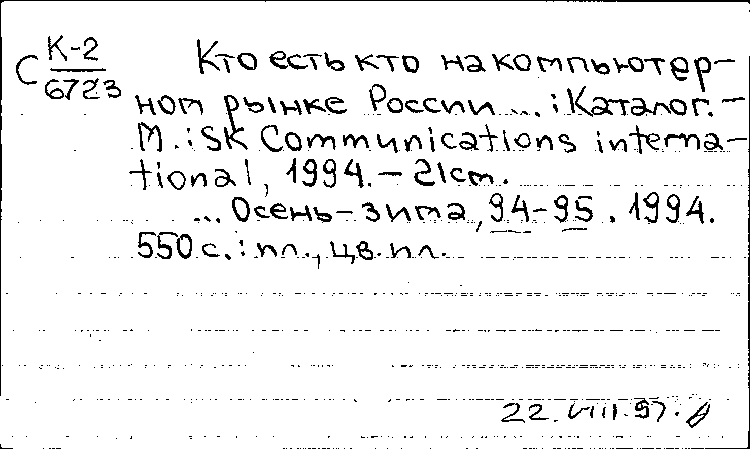 С К-2/6723 Кто есть кто на компьютер-
ном рынке России ... : Каталог. -
М. : SK Communications interna-
tional, 1994. - 21 cm.
... Осень-зима, 94-95. 1994.
550 с. : ил., цв. ил.
22.VIII.97.